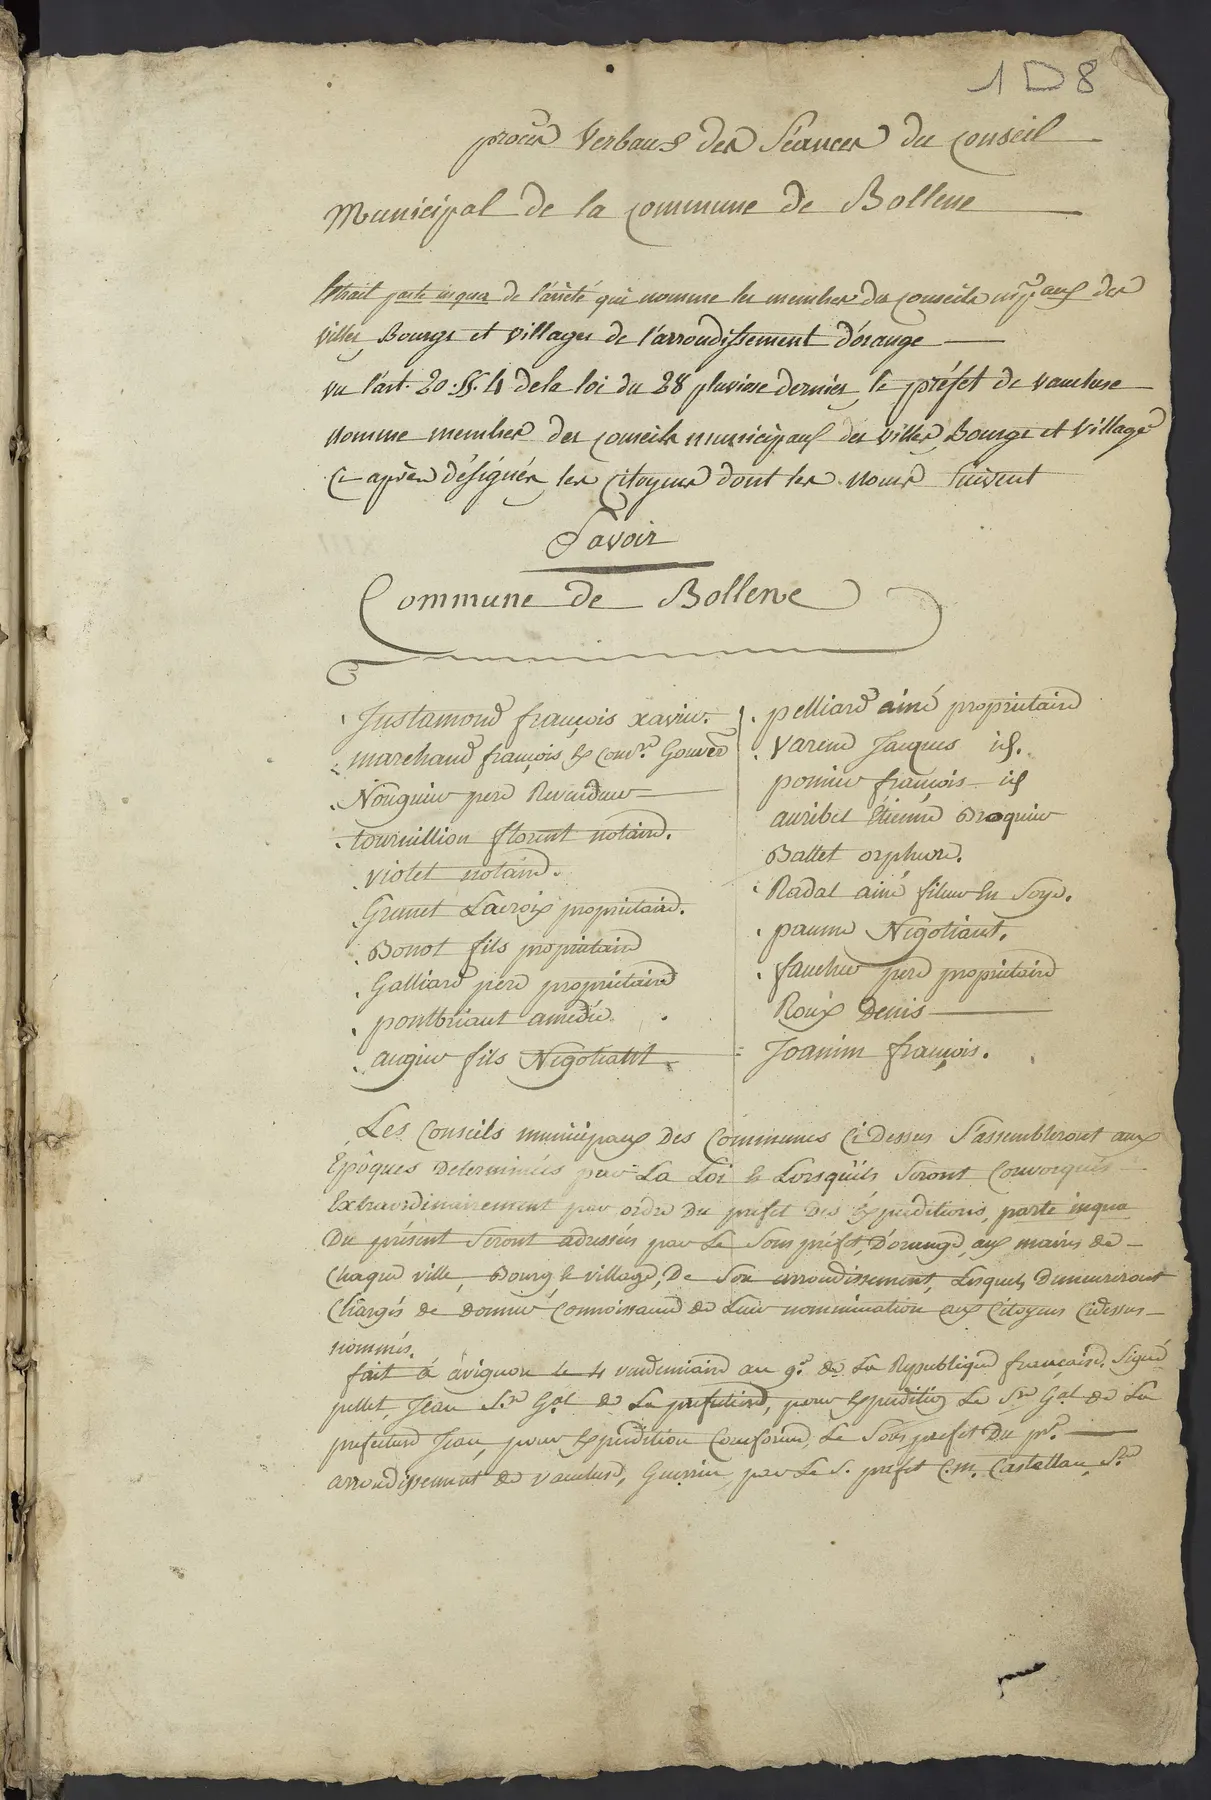 1 D 8
procès Verbaux des Séances du conseil
Municipal de la commune de Bollene
Extrait parte in qua de l'arrêté qui nomme les membres des conseils mpaux des
villes, Bourgs et villages de l'arrondissement d'orange
vu l'art. 20. §. 4 de la loi du 28 pluviose dernier, le préfet de vaucluse
nomme membres des conseils municipaux des villes, Bourgs et village
Ci-après désignés, les citoyens dont les noms suivent
Savoir
Commune de Bollene
Justamond françois xavier.
marchand françois Ex comre. Gouver
Nouguier pere
tournillion florent notaire.
violet notaire.
Granet Lacroix propriétaire.
Bonot fils propriétaire
Galliard pere propriétaire
pontbriant amédée.
augier fils Négotiant
pelliard ainé propriétaire
Varene Jacques id.
pomier françois id
auribel Étienne Broquier
Battet orphevre.
Radal ainé fileur En Soye.
paume Négotiant.
faucher pere propriétaire
Roux Denis
Joanin françois.
Les Conseils municipaux des Communes Ci Dessus S'assembleront aux
Epôques Determinées par La Loi & Lorsqu'ils Seront Convoqués
Extraordinairement par ordre Du prefet Des Expeditions, parte in qua
Du présent Seront adressés par Le Sous préfet, D'orange, aux maires de
Chaque ville, Bourg & village, De Son arrondissement, Lesquels Demeureront
Chargés de donner Connoissance de Leur nomminination aux Citoyens Cidessus
nommés.
fait à avignon le 4 vendemiaire an 9e. de La République française. Signé
pellet, Jean S.re G.al de La prefecture, pour Expedition Le S.re G.al de La
prefecture Jean, pour Expédition Conforme, Le Sous prefet Du pr.
arrondissement de vaucluse, Guerrin, par Le S. prefet C.m. Castellan, S.re